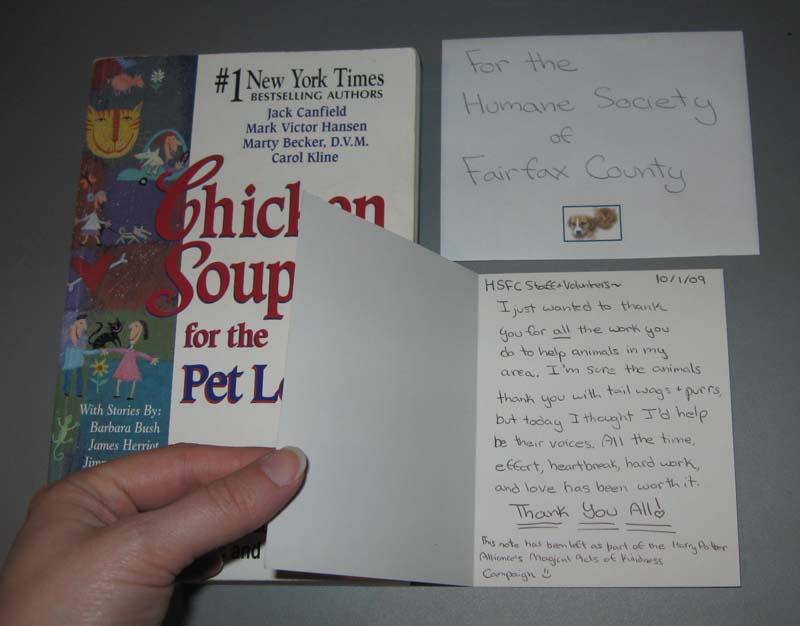 #1 New York Times
BESTSELLING AUTHORS
Jack Canfield
Mark Victor Hansen
Marty Becker, D.V.M.
Carol Kline
Chicken
Soup
for the
Pet L
With Stories By:
Barbara Bush
James Herriot
and
For the
Humane Society
of
Fairfax County
HSFC Staff + Volunters~ 10/1/09
I just wanted to thank
you for all the work you
do to help animals in my
area. I'm sure the animals
thank you with tail wags + purrs,
but today I thought I'd help
be their voices. All the time,
effort, heartbreak, hard work,
and love has been worth it.
Thank You All!
This note has been left as part of the Harry Potter
Alliance's Magical Acts of Kindness
Campaign